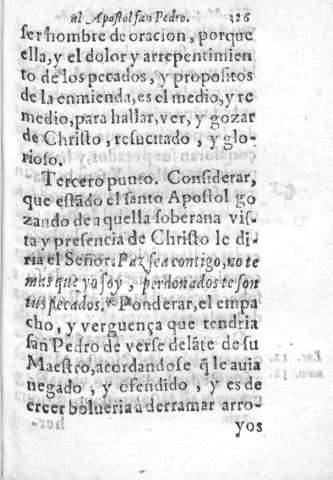 al Apostol san Pedro. 326
ser hombre de oracion, porque
ella, y el dolor y arrepentimien
to de los pecados, y propositos
de la enmienda, es el medio, y re
medio, para hallar, ver, y gozar
de Christo, resucitado, y glo-
rioso.
Tercero punto. Considerar,
que estādo el santo Apostol go
zando de aquella soberana vis-
ta y presencia de Christo le di-
ria el Señor: Paz sea contigo, no te
mas que yo soy, perdonados te son
tus pecados. Ponderar, el empa
cho, y verguença que tendria
san Pedro de verse delāte de su
Maestro, acordandose q̄ le auia
negado, y ofendido, y es de
creer bolueria a derramar arro-
yos